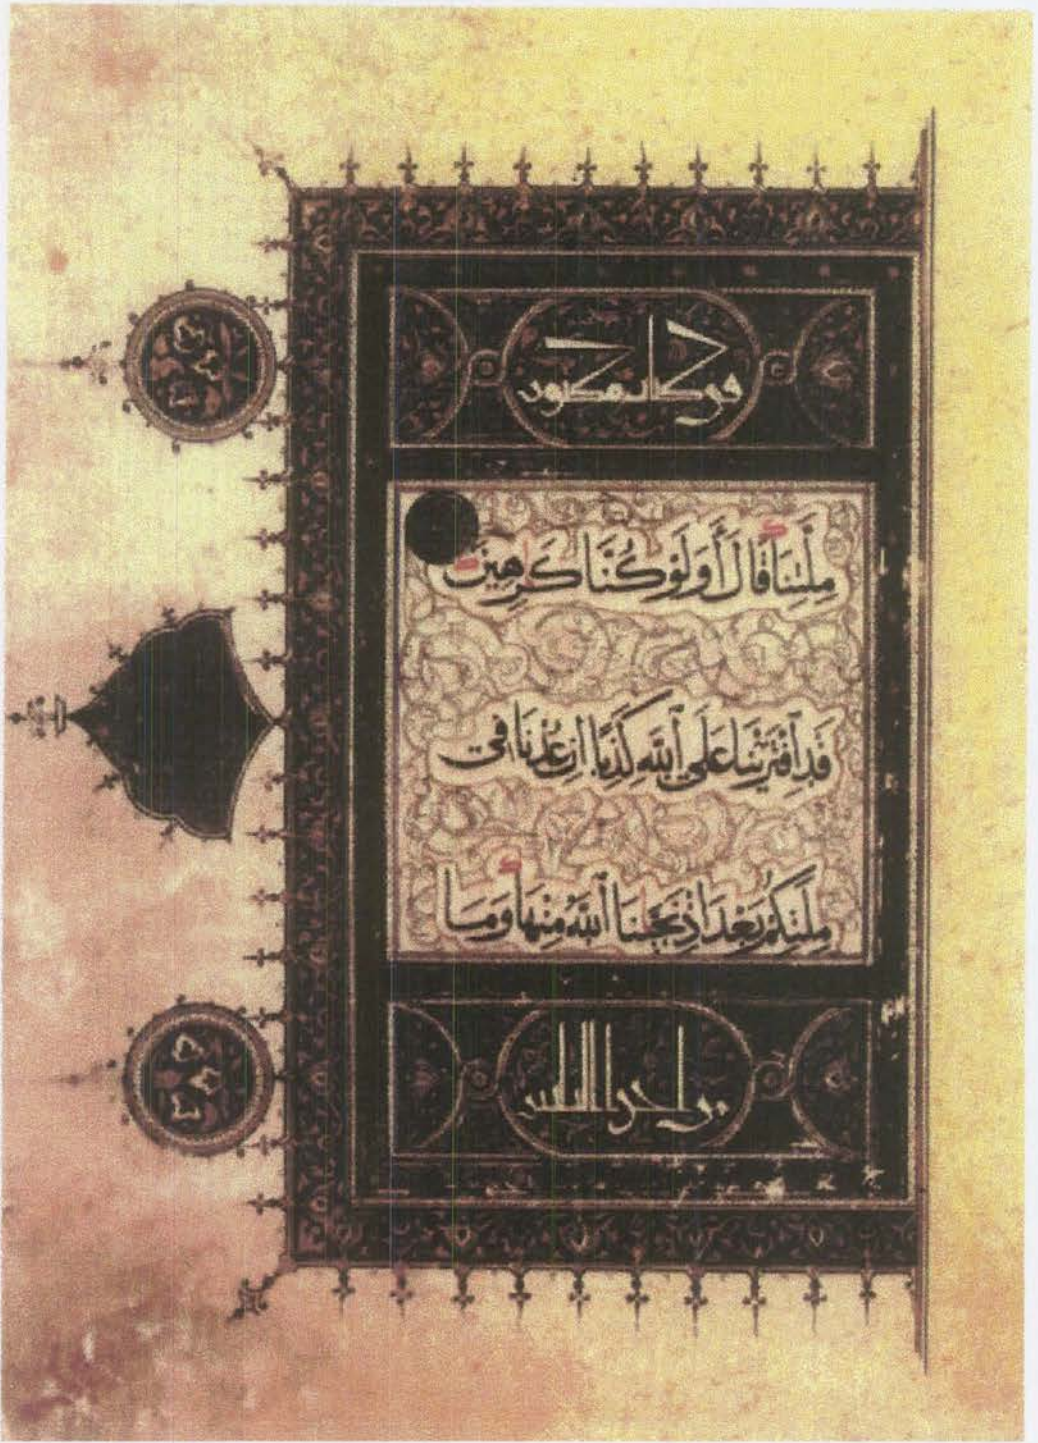 في كتاب مكنون
مِلَّتِنَا قَالَ أَوَلَوْ كُنَّا كَرِهِينَ
قَدِ ٱفْتَرَيْنَا عَلَى ٱللَّهِ كَذِبًا اِنْ عُدْنَا فِي
مِلَّتِكُمْ بَعْدَ اِذْ نَجَّينَا ٱللَّهُ مِنْهَا وَمَا